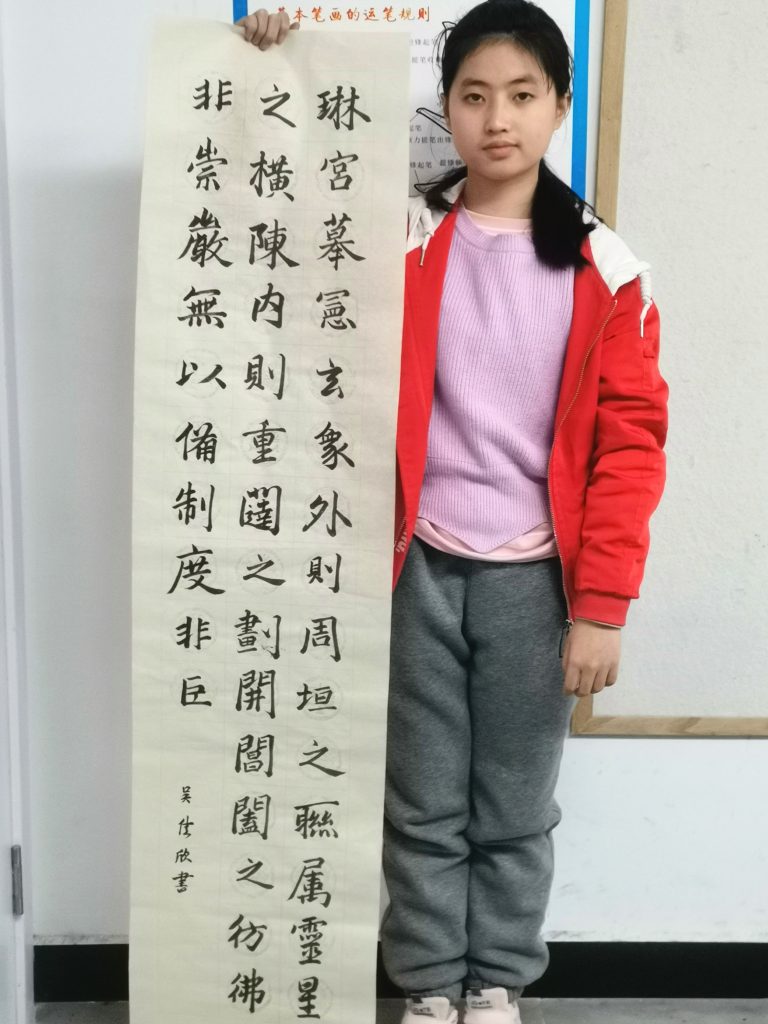 基本笔画的运笔规则
琳宮摹憲玄象外則周垣之聯属靈星
之橫陳内則重闥之劃開閶闔之彷彿
非崇嚴無以備制度非巨
吴欣書